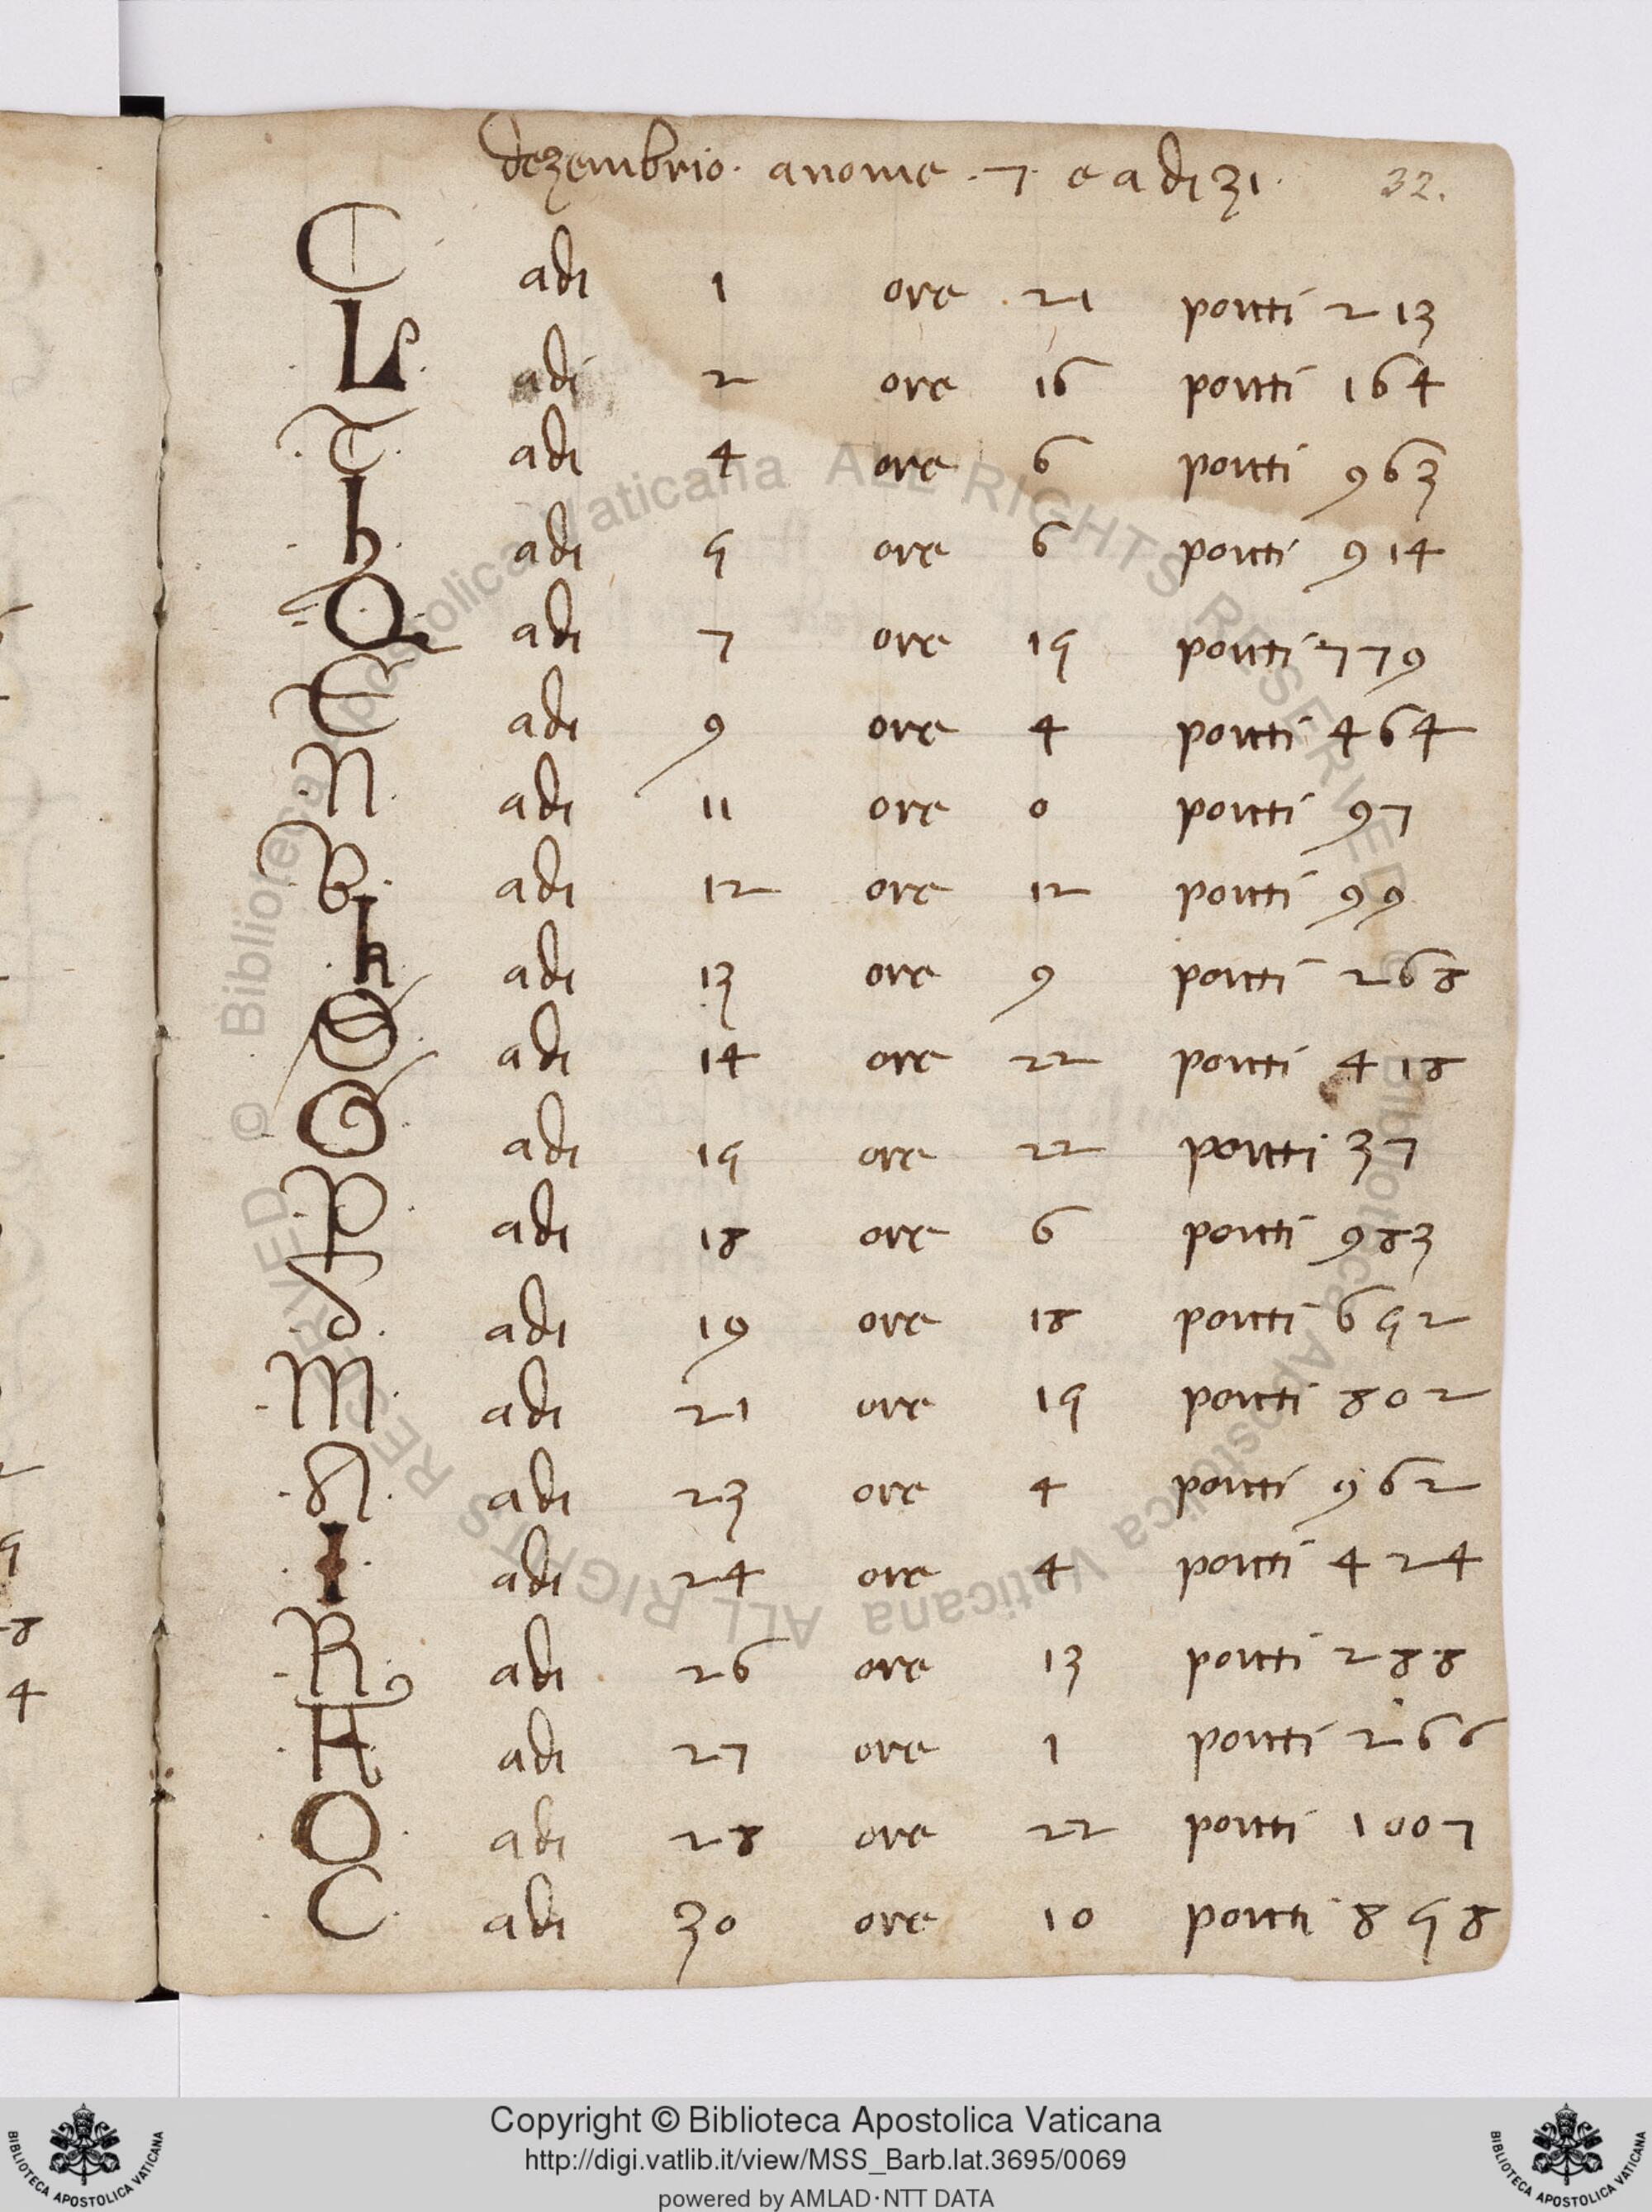 dezembrio · anome · 7 · e a di 31 · 32.
C adi 1 ore 21 pontti 213
L adi 2 ore 16 pontti 164
T adi 4 ore 6 pontti 963
b adi 5 ore 6 pontti 914
Q adi 7 ore 15 pontti 779
E adi 9 ore 4 pontti 464
N adi 11 ore 0 pontti 97
B adi 12 ore 12 pontti 99
h adi 13 ore 9 pontti 268
adi 14 ore 22 pontti 418
G adi 15 ore 22 pontti 37
P adi 18 ore 6 pontti 983
d adi 19 ore 18 pontti 652
M adi 21 ore 15 pontti 802
adi 23 ore 4 pontti 962
I adi 24 ore 4 pontti 424
R adi 26 ore 13 pontti 288
adi 27 ore 1 pontti 266
O adi 28 ore 22 pontti 1007
C adi 30 ore 10 pontti 858
© Biblioteca Apostolica Vaticana ALL RIGHTS RESERVED © Biblioteca Apostolica Vaticana ALL RIGHTS RESERVED
Copyright © Biblioteca Apostolica Vaticana
http://digi.vatlib.it/view/MSS_Barb.lat.3695/0069
powered by AMLAD·NTT DATA
BIBLIOTECA APOSTOLICA VATICANA
BIBLIOTECA APOSTOLICA VATICANA